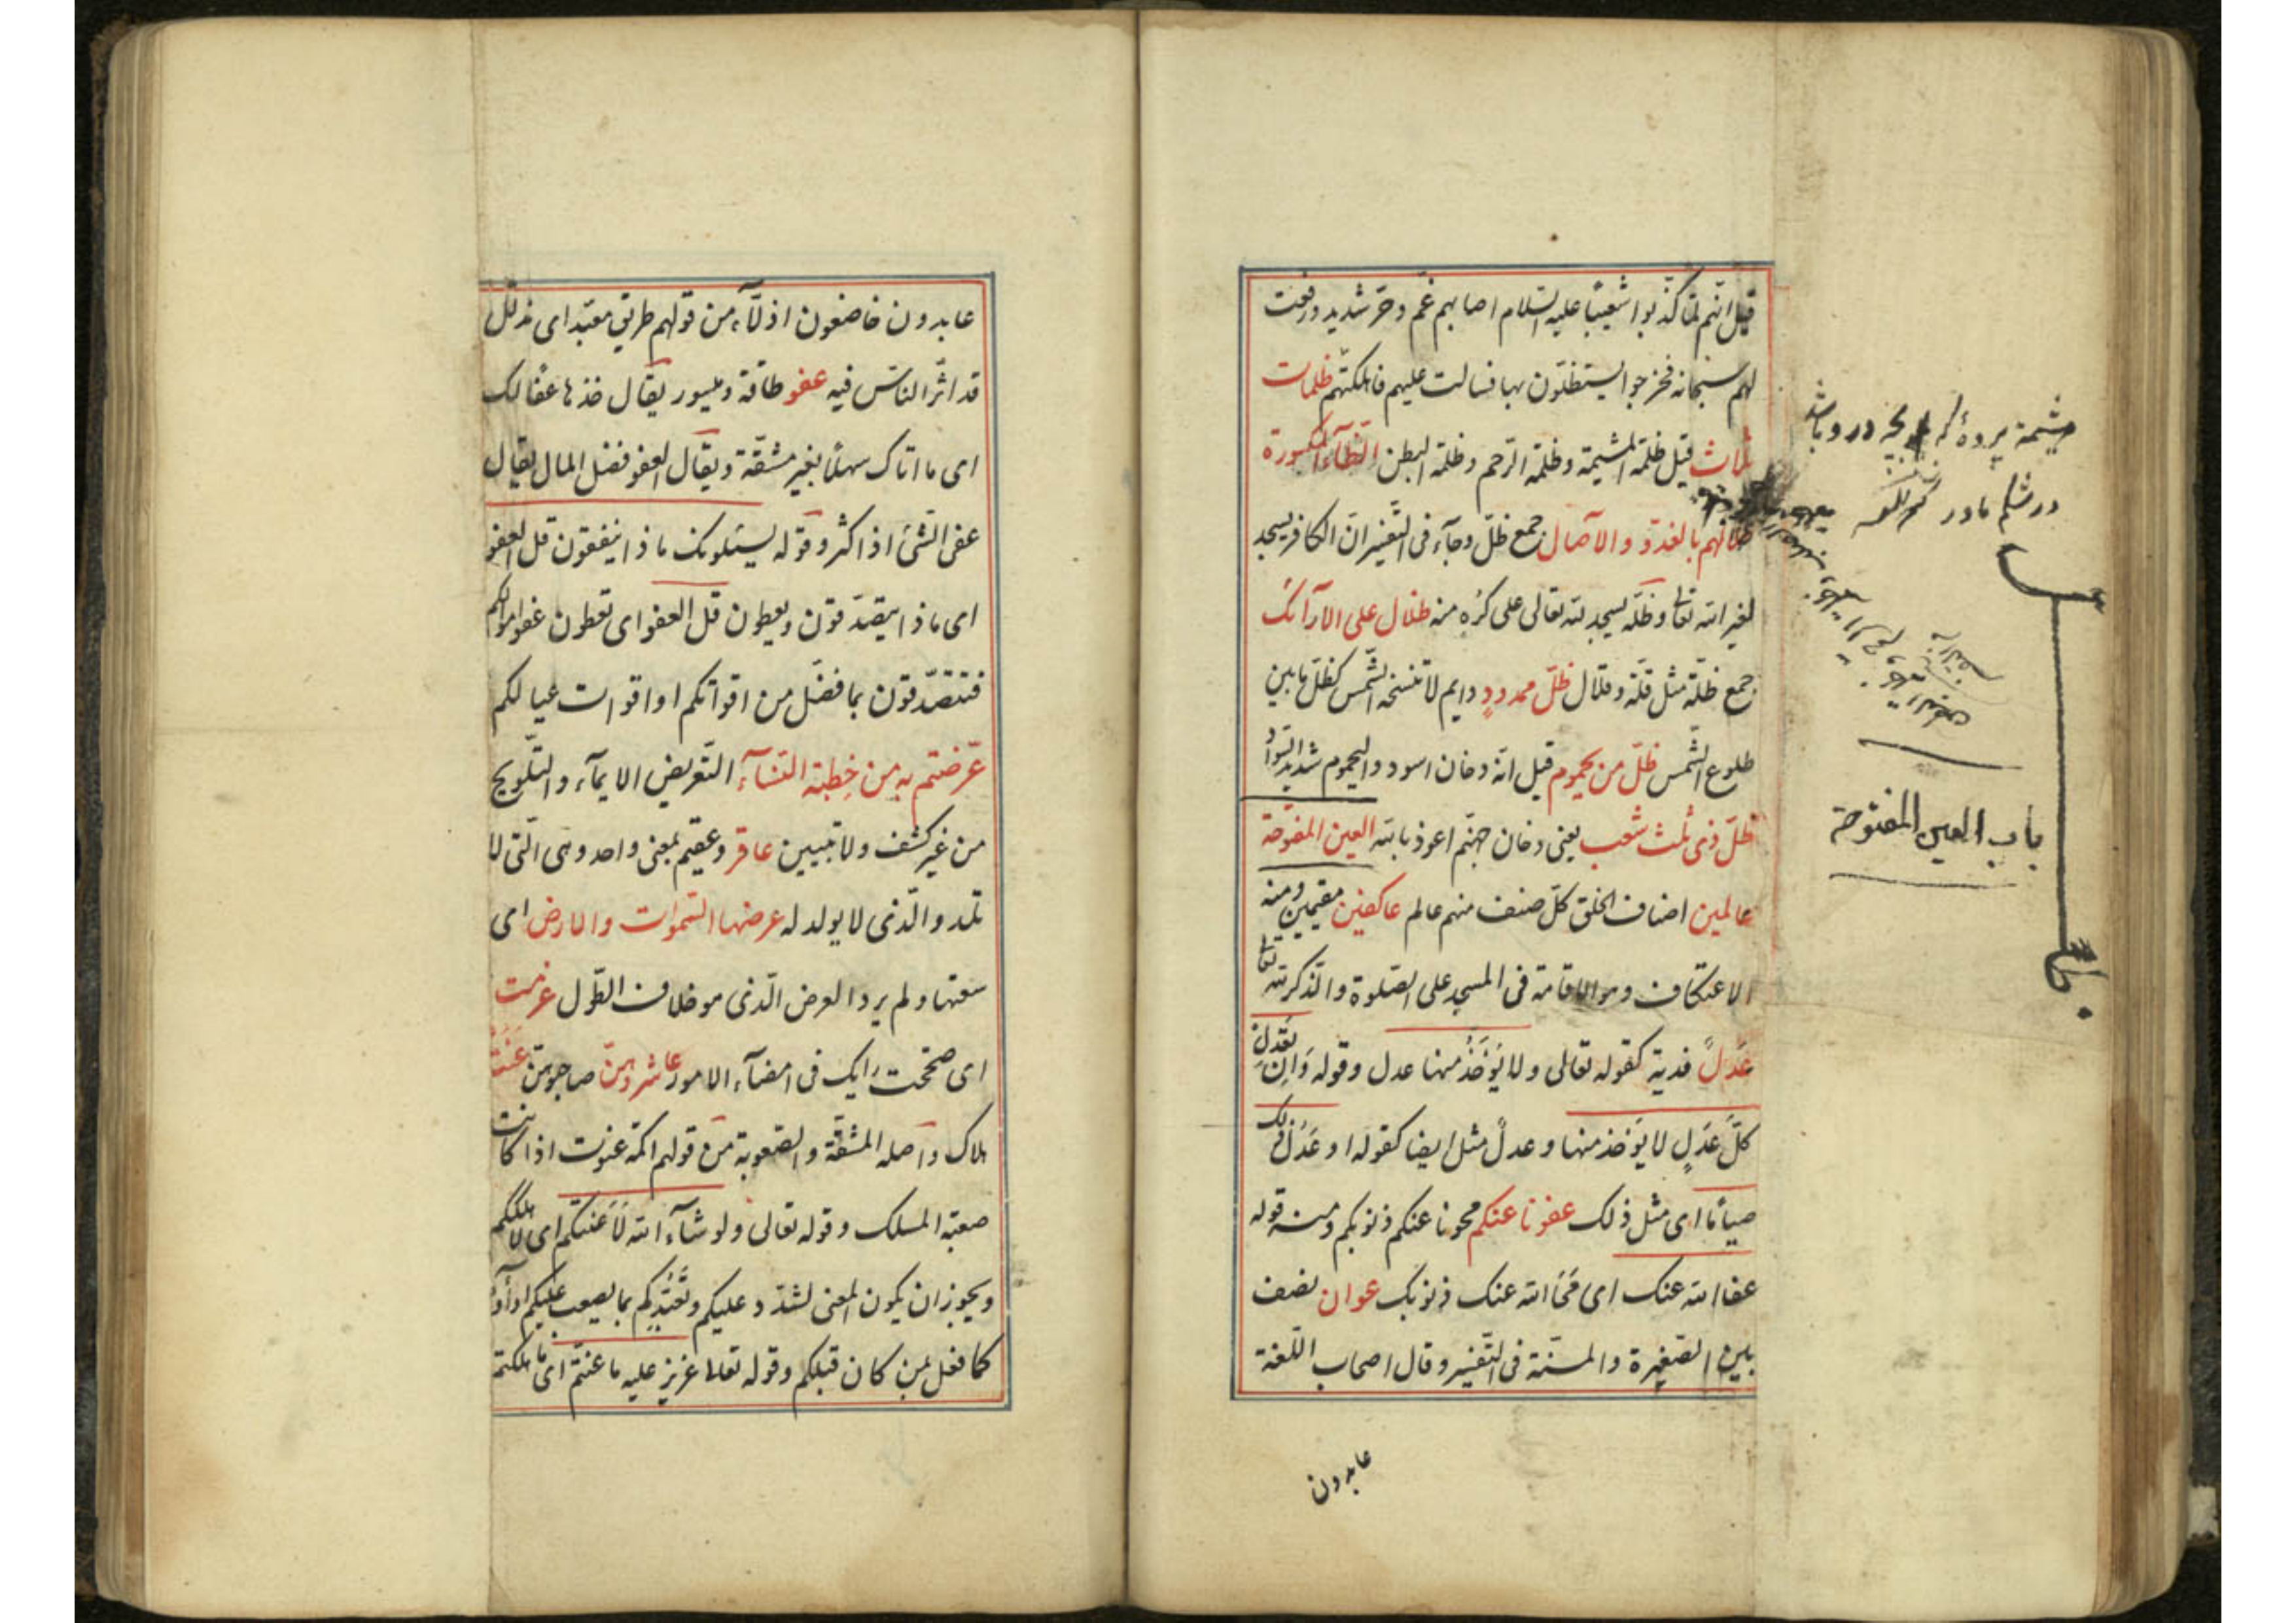 قيل انّهم لمّا كذّبوا شعيبًا عليه السّلام اصابهم غمّ وحرّ شديد ورفعت
لهم سحابة فخرجوا يستظلّون بها فسالت عليهم فاهلكتهم ظلمات
ثلاث قيل ظلمة المشيمة وظلمة الرّحم وظلمة البطن الظّآء المكسورة
ظلالهم بالغدوّ والآصال جمع ظلّ وجآء فى التّفسير انّ الكافر يسجد
لغير الله تعالى وظلّه يسجد لله تعالى على كُره منه ظلال على الارآئك
جمع ظلّة مثل قلّة وقلال ظلّ ممدودٍ دايم لا تنسخه الشّمس كظلّ ما بين
طلوع الشّمس ظلّ من يحموم قيل انّه دخان اسود واليحموم شديد السّواد
ظلّ ذى ثلث شعب يعنى دخان جهنّم اعوذ بالله العين المفتوحة
عالمين اصناف الخلق كلّ صنف منهم عالم عاكفين مقيمين ومنه
الاعتكاف وهو الاقامة فى المسجد على الصّلوة والذّكر لله تعالى
عَدلً فدية كقوله تعالى ولا يُؤخَذُ منها عدل وقوله وَاِن تَعدِل
كلَّ عَدلٍ لا يؤخذ منها وعدلٌ مثل ايضا كقوله او عَدلُ ذلك
صيامًا اى مثل ذلك عفونا عنكم محونا عنكم ذنوبكم ومنه قوله
عفا الله عنك اى مَحَا الله عنك ذنوبك عوان نصف
بين الصّغيرة والمسنّة فى التّفسير وقال اصحاب اللّغة
عابدون
مشيمة پردهٔ كه بچه در و باشد
در شكم مادر
باب العين المفتوحة
عابدون خاضعون اذلّآء من قولهم طريق معبّد اى مذلّل
قد اثّر النّاس فيه عفو طاقة وميسور يقال خذ ما عفا لك
اى ما اتاك سهلًا بغير مشقّة ويقال العفو فضل المال يقال
عفى الشّئ اذا كثر وقوله يسئلونك ماذا ينفقون قل العفو
اى ماذا يتصدّقون ويعطون قل العفو اى تعطون عفو اموالكم
فتتصدّقون بما فضل من اقواتكم او اقوات عيالكم
عرّضتم به من خِطبة النّسآء التّعريض الايمآء والتّلويح
من غير كشف ولا تبيين عاقر وعقيم بمعنى واحد وهى الّتى لا
تلد والّذى لا يولد له عرضها السّموات والارض اى
سعتها ولم يرد العرض الّذى هو خلاف الطّول عزمت
اى صحّحت رايك فى امضآء الامور عاشروهنّ صاحبوهنّ عَنَتَ
هلاك واصله المشقّة والصّعوبة من قولهم اكمة عنوت اذا كانت
صعبة المسلك وقوله تعالى ولو شآء الله لَأَعنتكم اى لاهلككم
ويجوز ان يكون المعنى لشدّد عليكم وتَعَبَّدكم بما يصعب عليكم اداؤه
كما فعل بمن كان قبلكم وقوله تعالى عزيز عليه ما عنتّم اى ما هلكتم